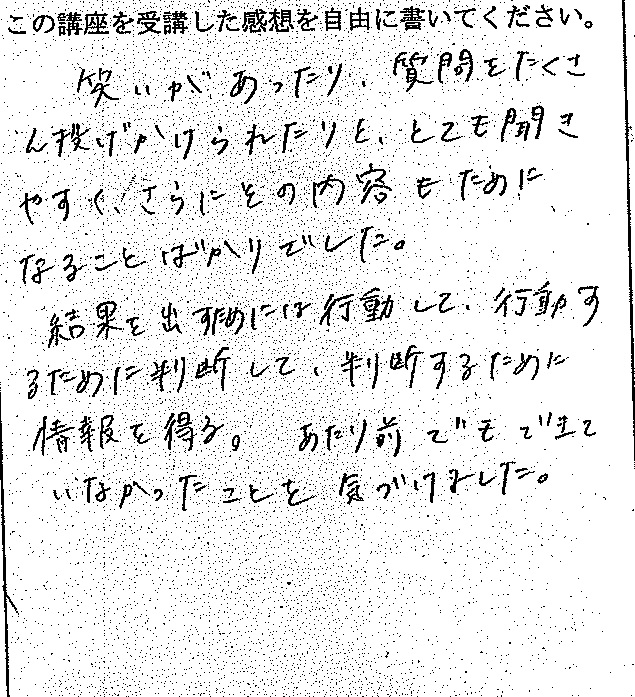 この講座を受講した感想を自由に書いてください。
笑いがあったり、質問をたくさ
ん投げかけられたりと、とても聞き
やすく、さらにその内容もために
なることばかりでした。
結果を出すためには行動して、行動す
るために判断して、判断するために
情報を得る。 あたり前でもできて
いなかったことを気づけました。